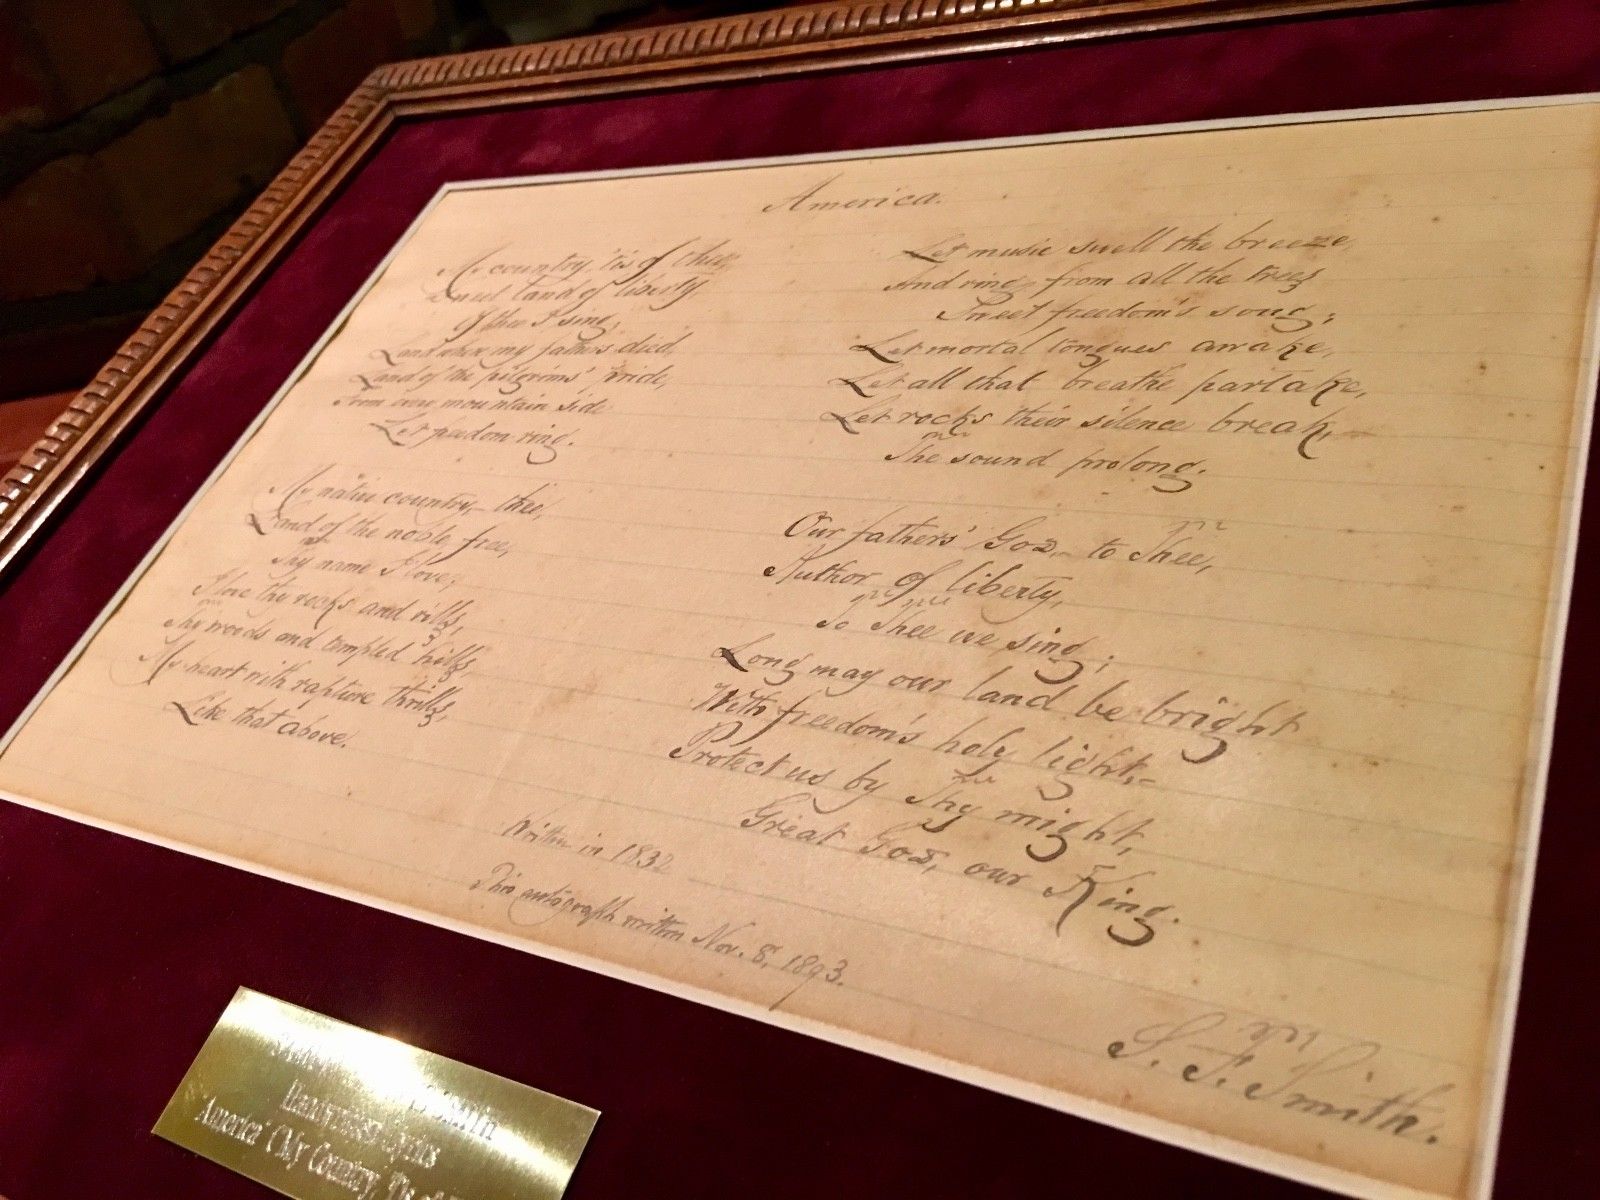 America.
My country, 'tis of thee,
Sweet land of liberty,
Of thee I sing;
Land where my fathers died,
Land of the pilgrims' pride,
From every mountain side
Let freedom ring.
My native country,- thee,
Land of the noble, free,
Thy name I love;
I love thy rocks and rills,
Thy woods and templed hills,
My heart with rapture thrills,
Like that above.
Let music swell the breeze,
And ring from all the trees
Sweet freedom's song;
Let mortal tongues awake,
Let all that breathe partake,
Let rocks their silence break,
The sound prolong.
Our fathers' God,- to Thee,
Author of liberty,
To Thee we sing;
Long may our land be bright
With freedom's holy light,-
Protect us by Thy might,
Great God, our King.
Written in 1832
This autograph written Nov. 8, 1893.
S. F. Smith.
Smith
Handwritten Lyrics
America" ("My Country, 'Tis of